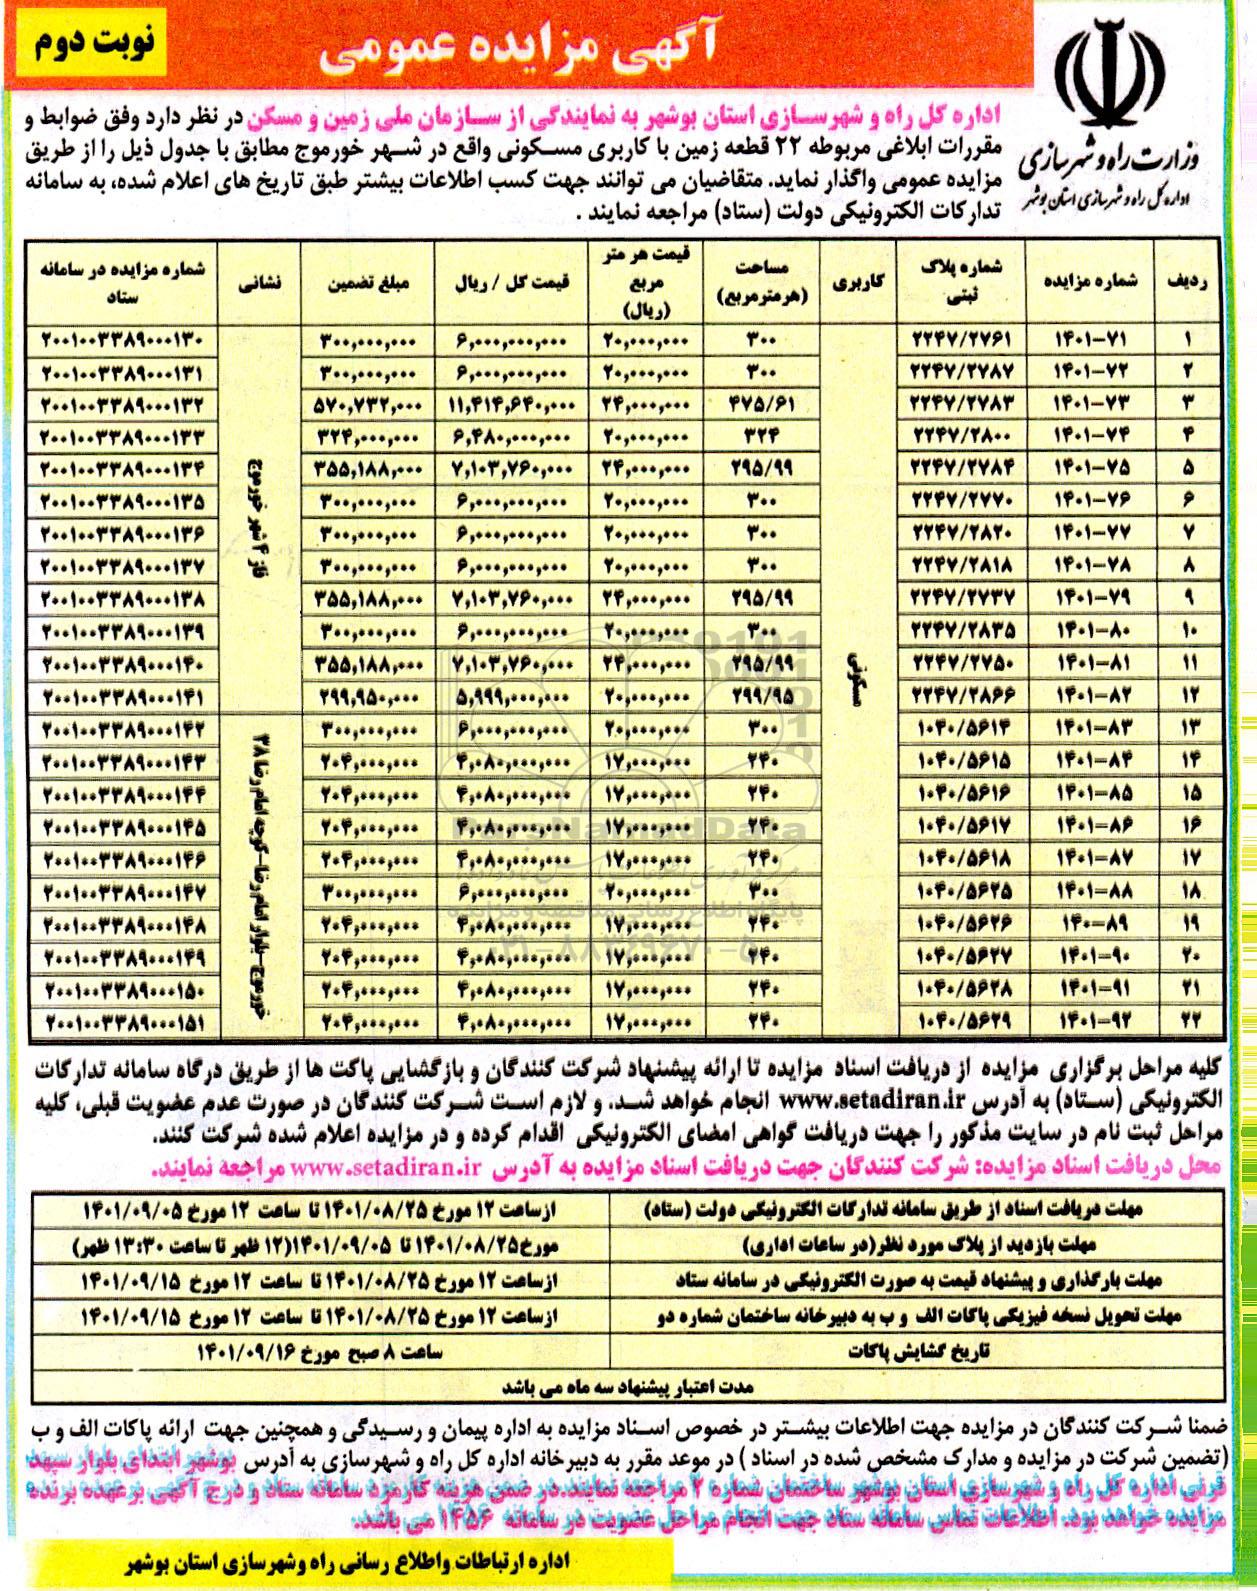 آگهی مزایده عمومی
نوبت دوم
وزارت راه و شهرسازی
اداره کل راه و شهرسازی استان بوشهر
اداره کل راه و شهرسازی استان بوشهر به نمایندگی از سازمان ملی زمین و مسکن در نظر دارد وفق ضوابط و
مقررات ابلاغی مربوطه ۲۲ قطعه زمین با کاربری مسکونی واقع در شهر خورموج مطابق با جدول ذیل را از طریق
مزایده عمومی واگذار نماید. متقاضیان می توانند جهت کسب اطلاعات بیشتر طبق تاریخ های اعلام شده، به سامانه
تدارکات الکترونیکی دولت (ستاد) مراجعه نمایند .
ردیف | شماره مزایده | شماره پلاک ثبتی | کاربری | مساحت (هرمترمربع) | قیمت هر متر مربع (ریال) | قیمت کل / ریال | مبلغ تضمین | نشانی | شماره مزایده در سامانه ستاد
مسکونی
فاز ۴ شهر خورموج
۱ | ۱۴۰۱-۷۱ | ۲۲۴۷/۲۷۶۱ | ۳۰۰ | ۲۰,۰۰۰,۰۰۰ | ۶,۰۰۰,۰۰۰,۰۰۰ | ۳۰۰,۰۰۰,۰۰۰ | ۲۰۰۱۰۰۳۳۸۹۰۰۰۱۳۰
۲ | ۱۴۰۱-۷۲ | ۲۲۴۷/۲۷۸۷ | ۳۰۰ | ۲۰,۰۰۰,۰۰۰ | ۶,۰۰۰,۰۰۰,۰۰۰ | ۳۰۰,۰۰۰,۰۰۰ | ۲۰۰۱۰۰۳۳۸۹۰۰۰۱۳۱
۳ | ۱۴۰۱-۷۳ | ۲۲۴۷/۲۷۸۳ | ۴۷۵/۶۱ | ۲۴,۰۰۰,۰۰۰ | ۱۱,۴۱۴,۶۴۰,۰۰۰ | ۵۷۰,۷۳۲,۰۰۰ | ۲۰۰۱۰۰۳۳۸۹۰۰۰۱۳۲
۴ | ۱۴۰۱-۷۴ | ۲۲۴۷/۲۸۰۰ | ۳۲۴ | ۲۰,۰۰۰,۰۰۰ | ۶,۴۸۰,۰۰۰,۰۰۰ | ۳۲۴,۰۰۰,۰۰۰ | ۲۰۰۱۰۰۳۳۸۹۰۰۰۱۳۳
۵ | ۱۴۰۱-۷۵ | ۲۲۴۷/۲۷۸۴ | ۲۹۵/۹۹ | ۲۴,۰۰۰,۰۰۰ | ۷,۱۰۳,۷۶۰,۰۰۰ | ۳۵۵,۱۸۸,۰۰۰ | ۲۰۰۱۰۰۳۳۸۹۰۰۰۱۳۴
۶ | ۱۴۰۱-۷۶ | ۲۲۴۷/۲۷۷۰ | ۳۰۰ | ۲۰,۰۰۰,۰۰۰ | ۶,۰۰۰,۰۰۰,۰۰۰ | ۳۰۰,۰۰۰,۰۰۰ | ۲۰۰۱۰۰۳۳۸۹۰۰۰۱۳۵
۷ | ۱۴۰۱-۷۷ | ۲۲۴۷/۲۸۲۰ | ۳۰۰ | ۲۰,۰۰۰,۰۰۰ | ۶,۰۰۰,۰۰۰,۰۰۰ | ۳۰۰,۰۰۰,۰۰۰ | ۲۰۰۱۰۰۳۳۸۹۰۰۰۱۳۶
۸ | ۱۴۰۱-۷۸ | ۲۲۴۷/۲۸۱۸ | ۳۰۰ | ۲۰,۰۰۰,۰۰۰ | ۶,۰۰۰,۰۰۰,۰۰۰ | ۳۰۰,۰۰۰,۰۰۰ | ۲۰۰۱۰۰۳۳۸۹۰۰۰۱۳۷
۹ | ۱۴۰۱-۷۹ | ۲۲۴۷/۲۷۳۷ | ۲۹۵/۹۹ | ۲۴,۰۰۰,۰۰۰ | ۷,۱۰۳,۷۶۰,۰۰۰ | ۳۵۵,۱۸۸,۰۰۰ | ۲۰۰۱۰۰۳۳۸۹۰۰۰۱۳۸
۱۰ | ۱۴۰۱-۸۰ | ۲۲۴۷/۲۸۳۵ | ۳۰۰ | ۲۰,۰۰۰,۰۰۰ | ۶,۰۰۰,۰۰۰,۰۰۰ | ۳۰۰,۰۰۰,۰۰۰ | ۲۰۰۱۰۰۳۳۸۹۰۰۰۱۳۹
۱۱ | ۱۴۰۱-۸۱ | ۲۲۴۷/۲۷۵۰ | ۲۹۵/۹۹ | ۲۴,۰۰۰,۰۰۰ | ۷,۱۰۳,۷۶۰,۰۰۰ | ۳۵۵,۱۸۸,۰۰۰ | ۲۰۰۱۰۰۳۳۸۹۰۰۰۱۴۰
۱۲ | ۱۴۰۱-۸۲ | ۲۲۴۷/۲۸۶۶ | ۲۹۹/۹۵ | ۲۰,۰۰۰,۰۰۰ | ۵,۹۹۹,۰۰۰,۰۰۰ | ۲۹۹,۹۵۰,۰۰۰ | ۲۰۰۱۰۰۳۳۸۹۰۰۰۱۴۱
خورموج-بلوار امام رضا-کوچه امام رضا ۳۸
۱۳ | ۱۴۰۱-۸۳ | ۱۰۴۰/۵۶۱۴ | ۳۰۰ | ۲۰,۰۰۰,۰۰۰ | ۶,۰۰۰,۰۰۰,۰۰۰ | ۳۰۰,۰۰۰,۰۰۰ | ۲۰۰۱۰۰۳۳۸۹۰۰۰۱۴۲
۱۴ | ۱۴۰۱-۸۴ | ۱۰۴۰/۵۶۱۵ | ۲۴۰ | ۱۷,۰۰۰,۰۰۰ | ۴,۰۸۰,۰۰۰,۰۰۰ | ۲۰۴,۰۰۰,۰۰۰ | ۲۰۰۱۰۰۳۳۸۹۰۰۰۱۴۳
۱۵ | ۱۴۰۱-۸۵ | ۱۰۴۰/۵۶۱۶ | ۲۴۰ | ۱۷,۰۰۰,۰۰۰ | ۴,۰۸۰,۰۰۰,۰۰۰ | ۲۰۴,۰۰۰,۰۰۰ | ۲۰۰۱۰۰۳۳۸۹۰۰۰۱۴۴
۱۶ | ۱۴۰۱-۸۶ | ۱۰۴۰/۵۶۱۷ | ۲۴۰ | ۱۷,۰۰۰,۰۰۰ | ۴,۰۸۰,۰۰۰,۰۰۰ | ۲۰۴,۰۰۰,۰۰۰ | ۲۰۰۱۰۰۳۳۸۹۰۰۰۱۴۵
۱۷ | ۱۴۰۱-۸۷ | ۱۰۴۰/۵۶۱۸ | ۲۴۰ | ۱۷,۰۰۰,۰۰۰ | ۴,۰۸۰,۰۰۰,۰۰۰ | ۲۰۴,۰۰۰,۰۰۰ | ۲۰۰۱۰۰۳۳۸۹۰۰۰۱۴۶
۱۸ | ۱۴۰۱-۸۸ | ۱۰۴۰/۵۶۲۵ | ۳۰۰ | ۲۰,۰۰۰,۰۰۰ | ۶,۰۰۰,۰۰۰,۰۰۰ | ۳۰۰,۰۰۰,۰۰۰ | ۲۰۰۱۰۰۳۳۸۹۰۰۰۱۴۷
۱۹ | ۱۴۰-۸۹ | ۱۰۴۰/۵۶۲۶ | ۲۴۰ | ۱۷,۰۰۰,۰۰۰ | ۴,۰۸۰,۰۰۰,۰۰۰ | ۲۰۴,۰۰۰,۰۰۰ | ۲۰۰۱۰۰۳۳۸۹۰۰۰۱۴۸
۲۰ | ۱۴۰۱-۹۰ | ۱۰۴۰/۵۶۲۷ | ۲۴۰ | ۱۷,۰۰۰,۰۰۰ | ۴,۰۸۰,۰۰۰,۰۰۰ | ۲۰۴,۰۰۰,۰۰۰ | ۲۰۰۱۰۰۳۳۸۹۰۰۰۱۴۹
۲۱ | ۱۴۰۱-۹۱ | ۱۰۴۰/۵۶۲۸ | ۲۴۰ | ۱۷,۰۰۰,۰۰۰ | ۴,۰۸۰,۰۰۰,۰۰۰ | ۲۰۴,۰۰۰,۰۰۰ | ۲۰۰۱۰۰۳۳۸۹۰۰۰۱۵۰
۲۲ | ۱۴۰۱-۹۲ | ۱۰۴۰/۵۶۲۹ | ۲۴۰ | ۱۷,۰۰۰,۰۰۰ | ۴,۰۸۰,۰۰۰,۰۰۰ | ۲۰۴,۰۰۰,۰۰۰ | ۲۰۰۱۰۰۳۳۸۹۰۰۰۱۵۱
ParsNamadData
پایگاه اطلاع رسانی مناقصه و مزایده
۰۲۱-۸۸۳۴۹۶۷۰-۵
کلیه مراحل برگزاری مزایده از دریافت اسناد مزایده تا ارائه پیشنهاد شرکت کنندگان و بازگشایی پاکت ها از طریق درگاه سامانه تدارکات
الکترونیکی (ستاد) به آدرس www.setadiran.ir انجام خواهد شد. و لازم است شرکت کنندگان در صورت عدم عضویت قبلی، کلیه
مراحل ثبت نام در سایت مذکور را جهت دریافت گواهی امضای الکترونیکی اقدام کرده و در مزایده اعلام شده شرکت کنند.
محل دریافت اسناد مزایده: شرکت کنندگان جهت دریافت اسناد مزایده به آدرس www.setadiran.ir مراجعه نمایند.
مهلت دریافت اسناد از طریق سامانه تدارکات الکترونیکی دولت (ستاد) | از ساعت ۱۲ مورخ ۱۴۰۱/۰۸/۲۵ تا ساعت ۱۲ مورخ ۱۴۰۱/۰۹/۰۵
مهلت بازدید از پلاک مورد نظر(در ساعات اداری) | مورخ ۱۴۰۱/۰۸/۲۵ تا ۱۴۰۱/۰۹/۰۵(۱۲ ظهر تا ساعت ۱۳:۳۰ ظهر)
مهلت بارگذاری و پیشنهاد قیمت به صورت الکترونیکی در سامانه ستاد | از ساعت ۱۲ مورخ ۱۴۰۱/۰۸/۲۵ تا ساعت ۱۲ مورخ ۱۴۰۱/۰۹/۱۵
مهلت تحویل نسخه فیزیکی پاکات الف و ب به دبیرخانه ساختمان شماره دو | از ساعت ۱۲ مورخ ۱۴۰۱/۰۸/۲۵ تا ساعت ۱۲ مورخ ۱۴۰۱/۰۹/۱۵
تاریخ گشایش پاکات | ساعت ۸ صبح مورخ ۱۴۰۱/۰۹/۱۶
مدت اعتبار پیشنهاد سه ماه می باشد
ضمنا شرکت کنندگان در مزایده جهت اطلاعات بیشتر در خصوص اسناد مزایده به اداره پیمان و رسیدگی و همچنین جهت ارائه پاکات الف و ب
(تضمین شرکت در مزایده و مدارک مشخص شده در اسناد ) در موعد مقرر به دبیرخانه اداره کل راه و شهرسازی به آدرس بوشهر ابتدای بلوار سپهبد
قرنی اداره کل راه و شهرسازی استان بوشهر ساختمان شماره ۲ مراجعه نمایند.در ضمن هزینه کارمزد سامانه ستاد و درج آگهی برعهده برنده
مزایده خواهد بود. اطلاعات تماس سامانه ستاد جهت انجام مراحل عضویت در سامانه ۱۴۵۶ می باشد.
اداره ارتباطات واطلاع رسانی راه وشهرسازی استان بوشهر